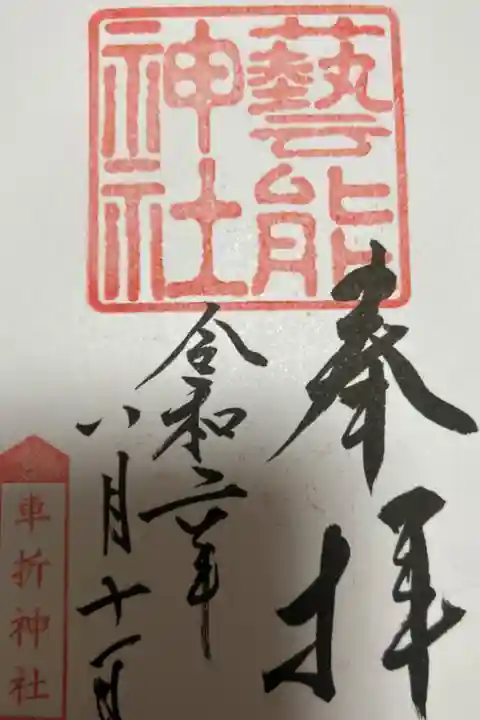 藝能
神社
奉拝
令和二年
八月十一日
車折神社